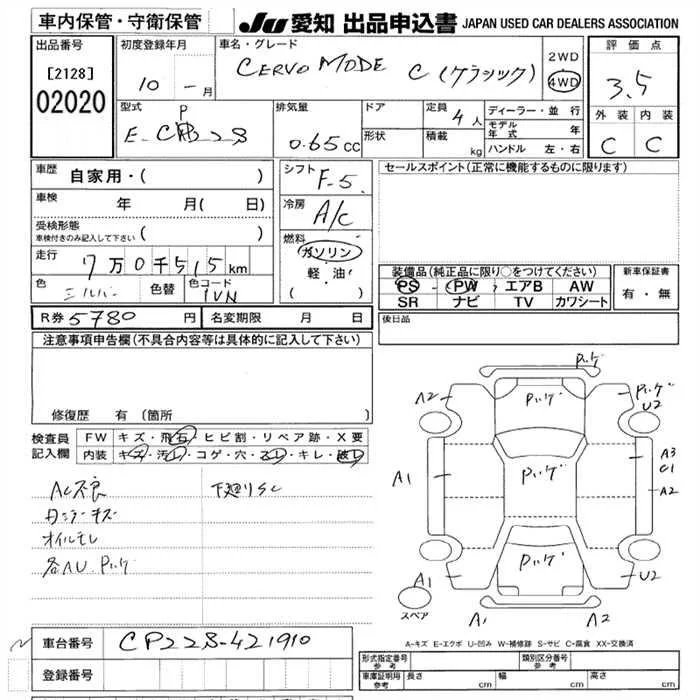 車内保管・守衛保管
JU 愛知 出品申込書 JAPAN USED CAR DEALERS ASSOCIATION
出品番号
[2128]
02020
初度登録年月
10 - 月
車名・グレード
CERVO MODE C (クラシック)
2WD
4WD
評価点
3.5
外装 内装
C C
型式
P
排気量
0.65 CC
ドア
形状
定員
4人
積載
kg
ディーラー・並行
モデル年式 年
ハンドル 左・右
車歴
自家用・( )
車検 年 月( 日)
受検形態
車検付きのみ記入して下さい ( )
走行
7万0千515km
色
シルバー
色替
色コード
シフト
F-5
冷房
A/C
燃料
ガソリン
軽・油
( )
セールスポイント(正常に機能するものに限ります)
装備品(純正品に限り○をつけてください)
PS PW エアB AW
SR ナビ TV カワシート
新車保証書
有・無
後日品
R券 5780 円
名変期限 月 日
注意事項申告欄(不具合内容等は具体的に記入して下さい)
修復歴 有 (箇所
検査員記入欄
FW キズ・飛石・ヒビ割・リペア跡・X要
内装 キズ・汚レ・コゲ・穴・スレ・キレ・破レ
AC不良
下廻りSC
オイルモレ
A2
U2
A1
A3
C1
A2
A1
U2
A1
A2
スペア
A-キズ E-エクボ U-凹み W-補修跡 S-サビ C-腐食 XX-交換済
車台番号
CP22S-421910
登録番号
形式指定番号
参考
類別区分番号
参考
車庫証明用
参考
長さ cm
幅 cm
高さ cm